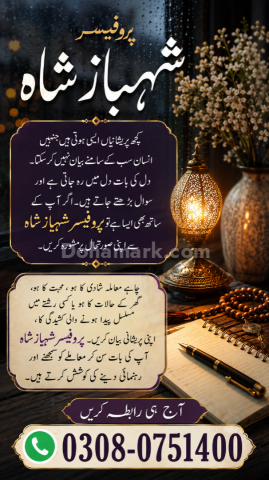 پروفیسر
شہباز شاہ
کچھ پریشانیاں ایسی ہوتی ہیں جنہیں
انسان سب کے سامنے بیان نہیں کر سکتا۔
دل کی بات دل میں رہ جاتی ہے اور
سوال بڑھتے جاتے ہیں۔ اگر آپ کے
ساتھ بھی ایسا ہے تو پروفیسر شہباز شاہ
سے اپنی صورتحال پر مشورہ کریں۔
Dohamark.com
چاہے معاملہ شادی کا ہو، محبت کا ہو،
گھر کے حالات کا ہو یا کسی رشتے میں
مسلسل پیدا ہونے والی کشیدگی کا،
اپنی پریشانی بیان کریں۔ پروفیسر شہباز شاہ
آپ کی بات سن کر معاملے کو سمجھنے اور
رہنمائی دینے کی کوشش کرتے ہیں۔
آج ہی رابطہ کریں
0308-0751400